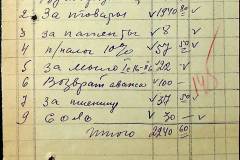 2 За товары √ 1940 80 √
3 за патенты √ 8 √
4 п/налог 10% √ 57 80 √
5 За мыло √ 22 √
6 Возврат аванса √ 100 —
7 За пшеницу √ 37 50 √
9 Сало √ 30 — √
Итого 2240 60